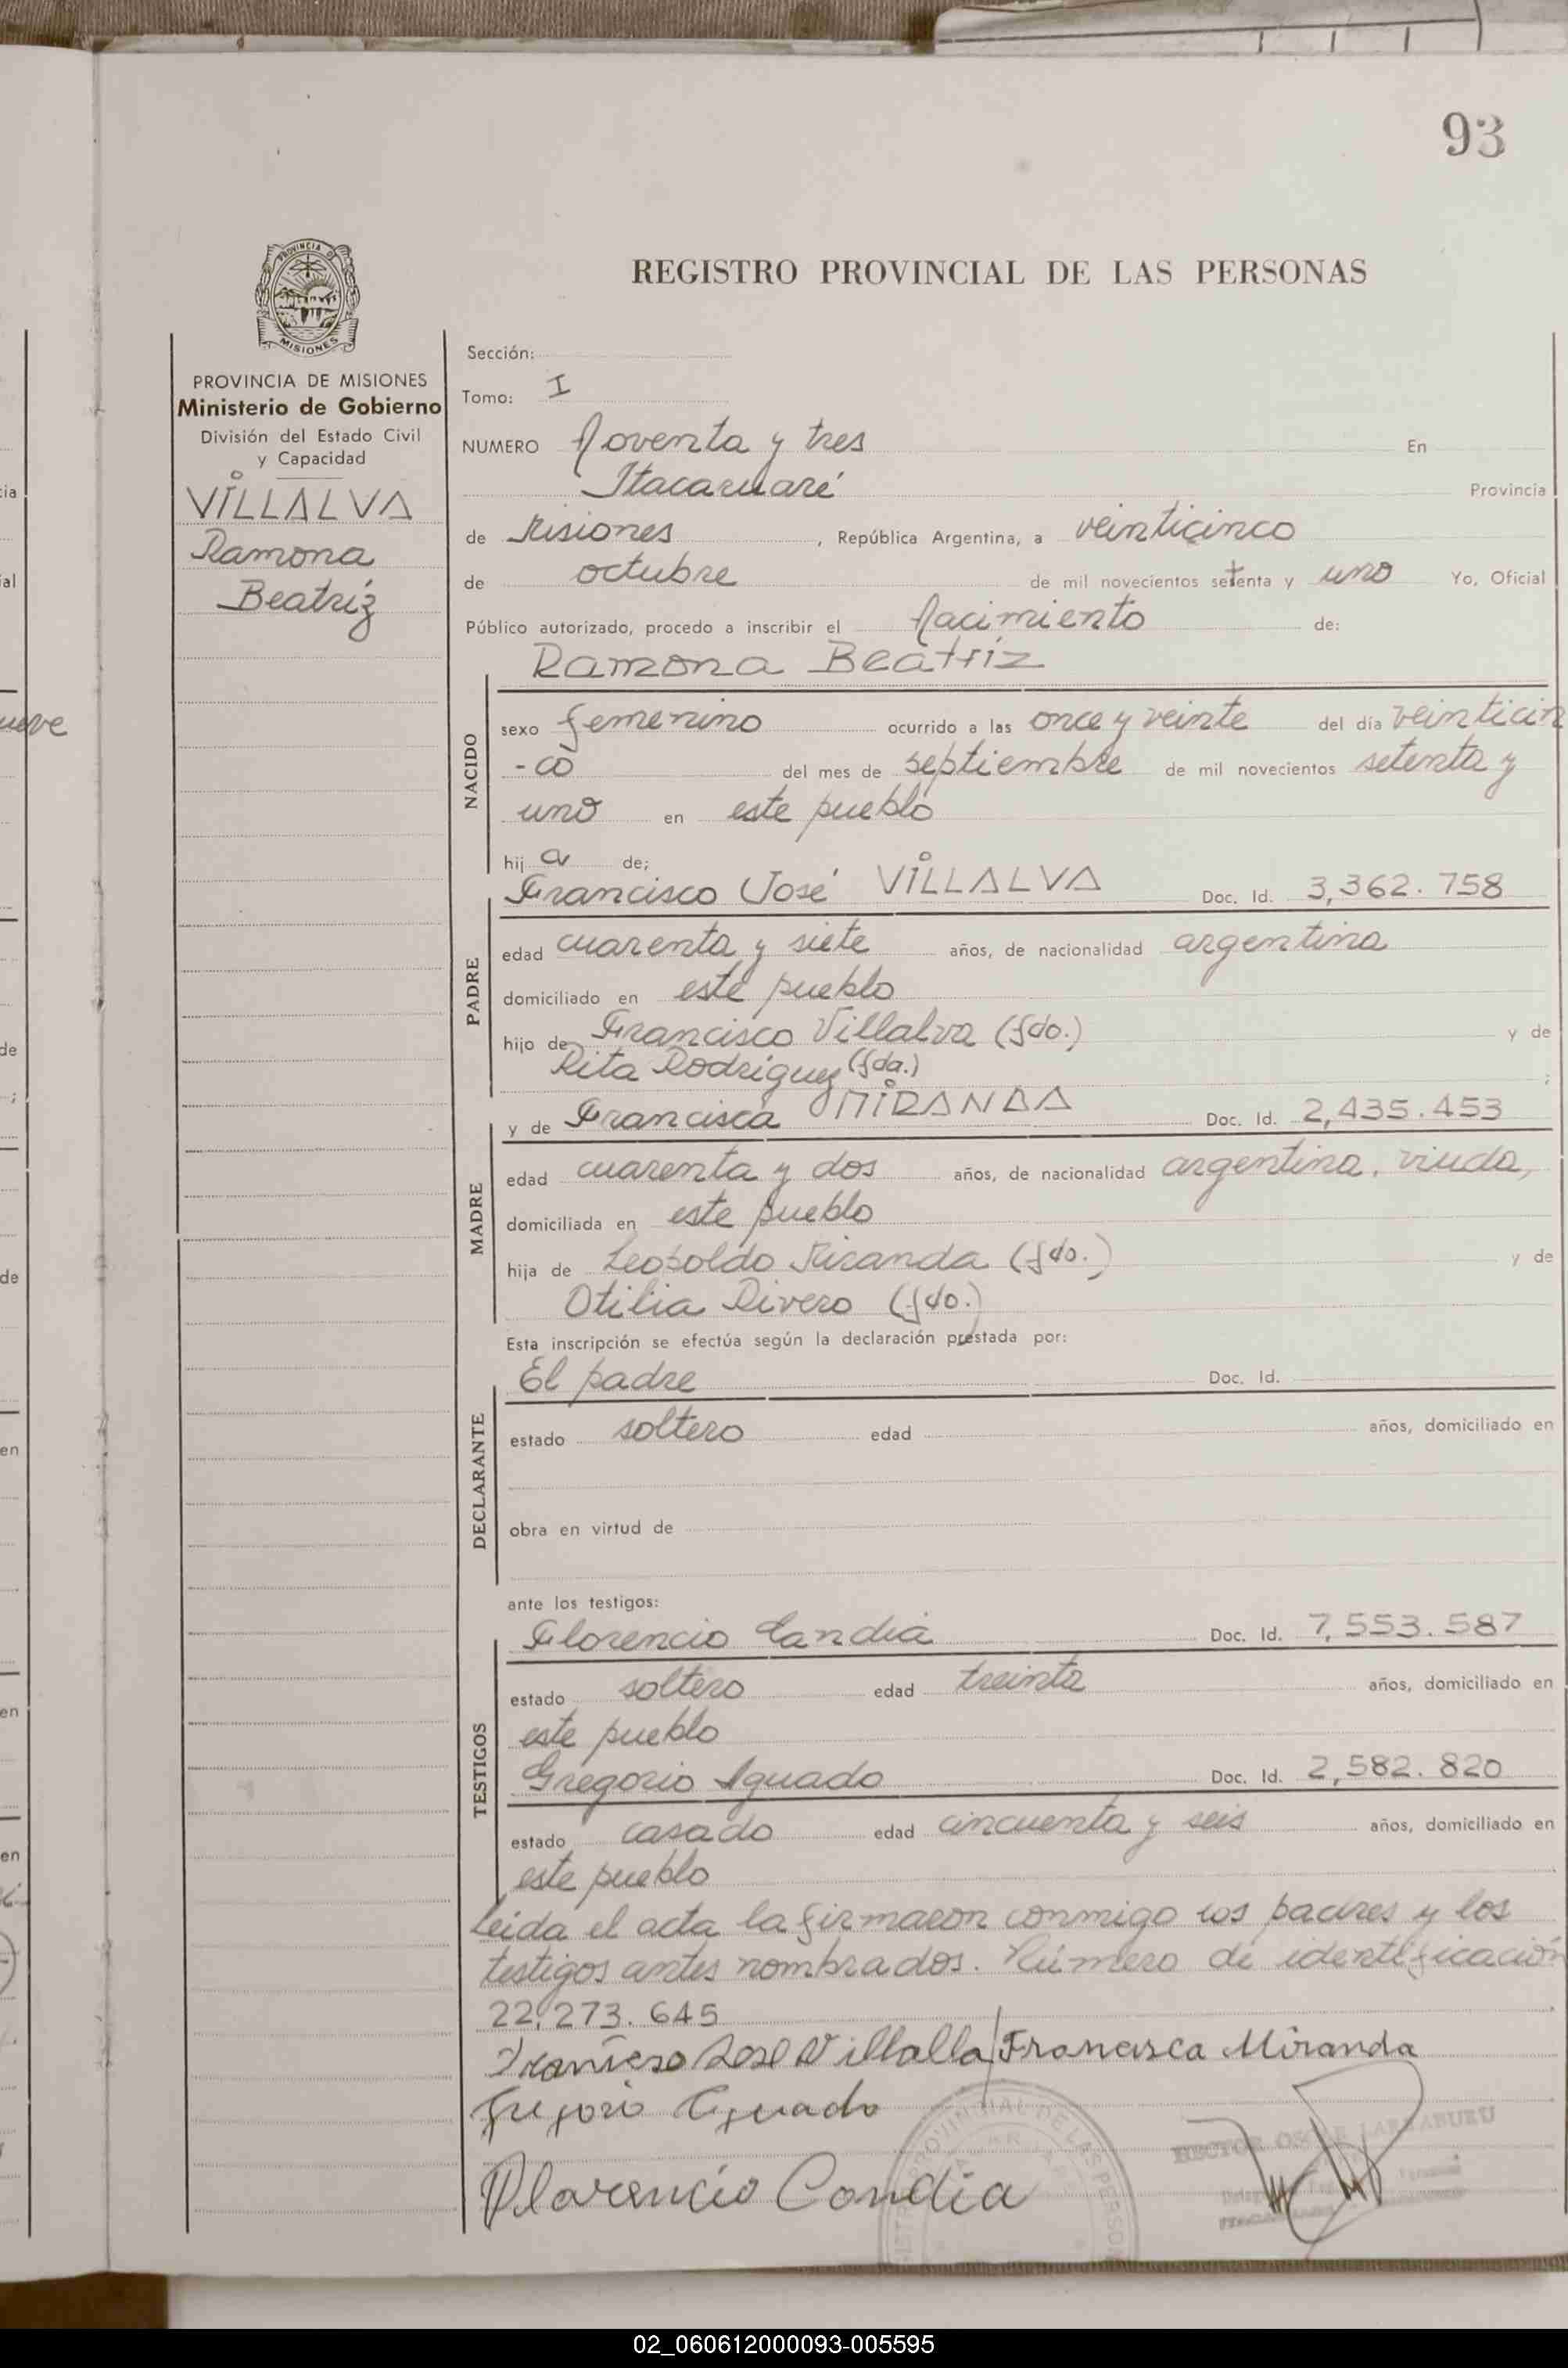 93
REGISTRO PROVINCIAL DE LAS PERSONAS
PROVINCIA DE MISIONES
Ministerio de Gobierno
División del Estado Civil
y Capacidad
VILLALVA
Ramona
Beatriz
Sección:
Tomo: I
NUMERO Noventa y tres En
Itacaruaré Provincia
de Misiones, República Argentina, a veinticinco
de octubre de mil novecientos setenta y uno Yo, Oficial
Público autorizado, procedo a inscribir el Nacimiento de:
Ramona Beatriz
NACIDO
sexo femenino ocurrido a las once y veinte del día veinticin
-co del mes de septiembre de mil novecientos setenta y
uno en este pueblo
hij a de;
PADRE
Francisco José VILLALVA Doc. Id. 3,362.758
edad cuarenta y siete años, de nacionalidad argentina
domiciliado en este pueblo
hijo de Francisco Villalva (fdo.) y de
Rita Rodríguez (fda.) ;
MADRE
y de Francisca MIRANDA Doc. Id. 2,435.453
edad cuarenta y dos años, de nacionalidad argentina, viuda,
domiciliada en este pueblo
hija de Leopoldo Miranda (fdo.) y de
Otilia Rivero (fdo.)
Esta inscripción se efectúa según la declaración prestada por:
DECLARANTE
El padre Doc. Id.
estado soltero edad años, domiciliado en
obra en virtud de
ante los testigos:
TESTIGOS
Florencio Candia Doc. Id. 7,553.587
estado soltero edad treinta años, domiciliado en
este pueblo
Gregorio Aguado Doc. Id. 2,582.820
estado casado edad cincuenta y seis años, domiciliado en
este pueblo
Leida el acta la firmaron conmigo los padres y los
testigos antes nombrados. Número de identificación
22,273.645
Francisco Jose Villalla Francisca Miranda
Gregorio Aguado
Florencio Candia
HECTOR OSCAR LARRABURU
02_060612000093-005595